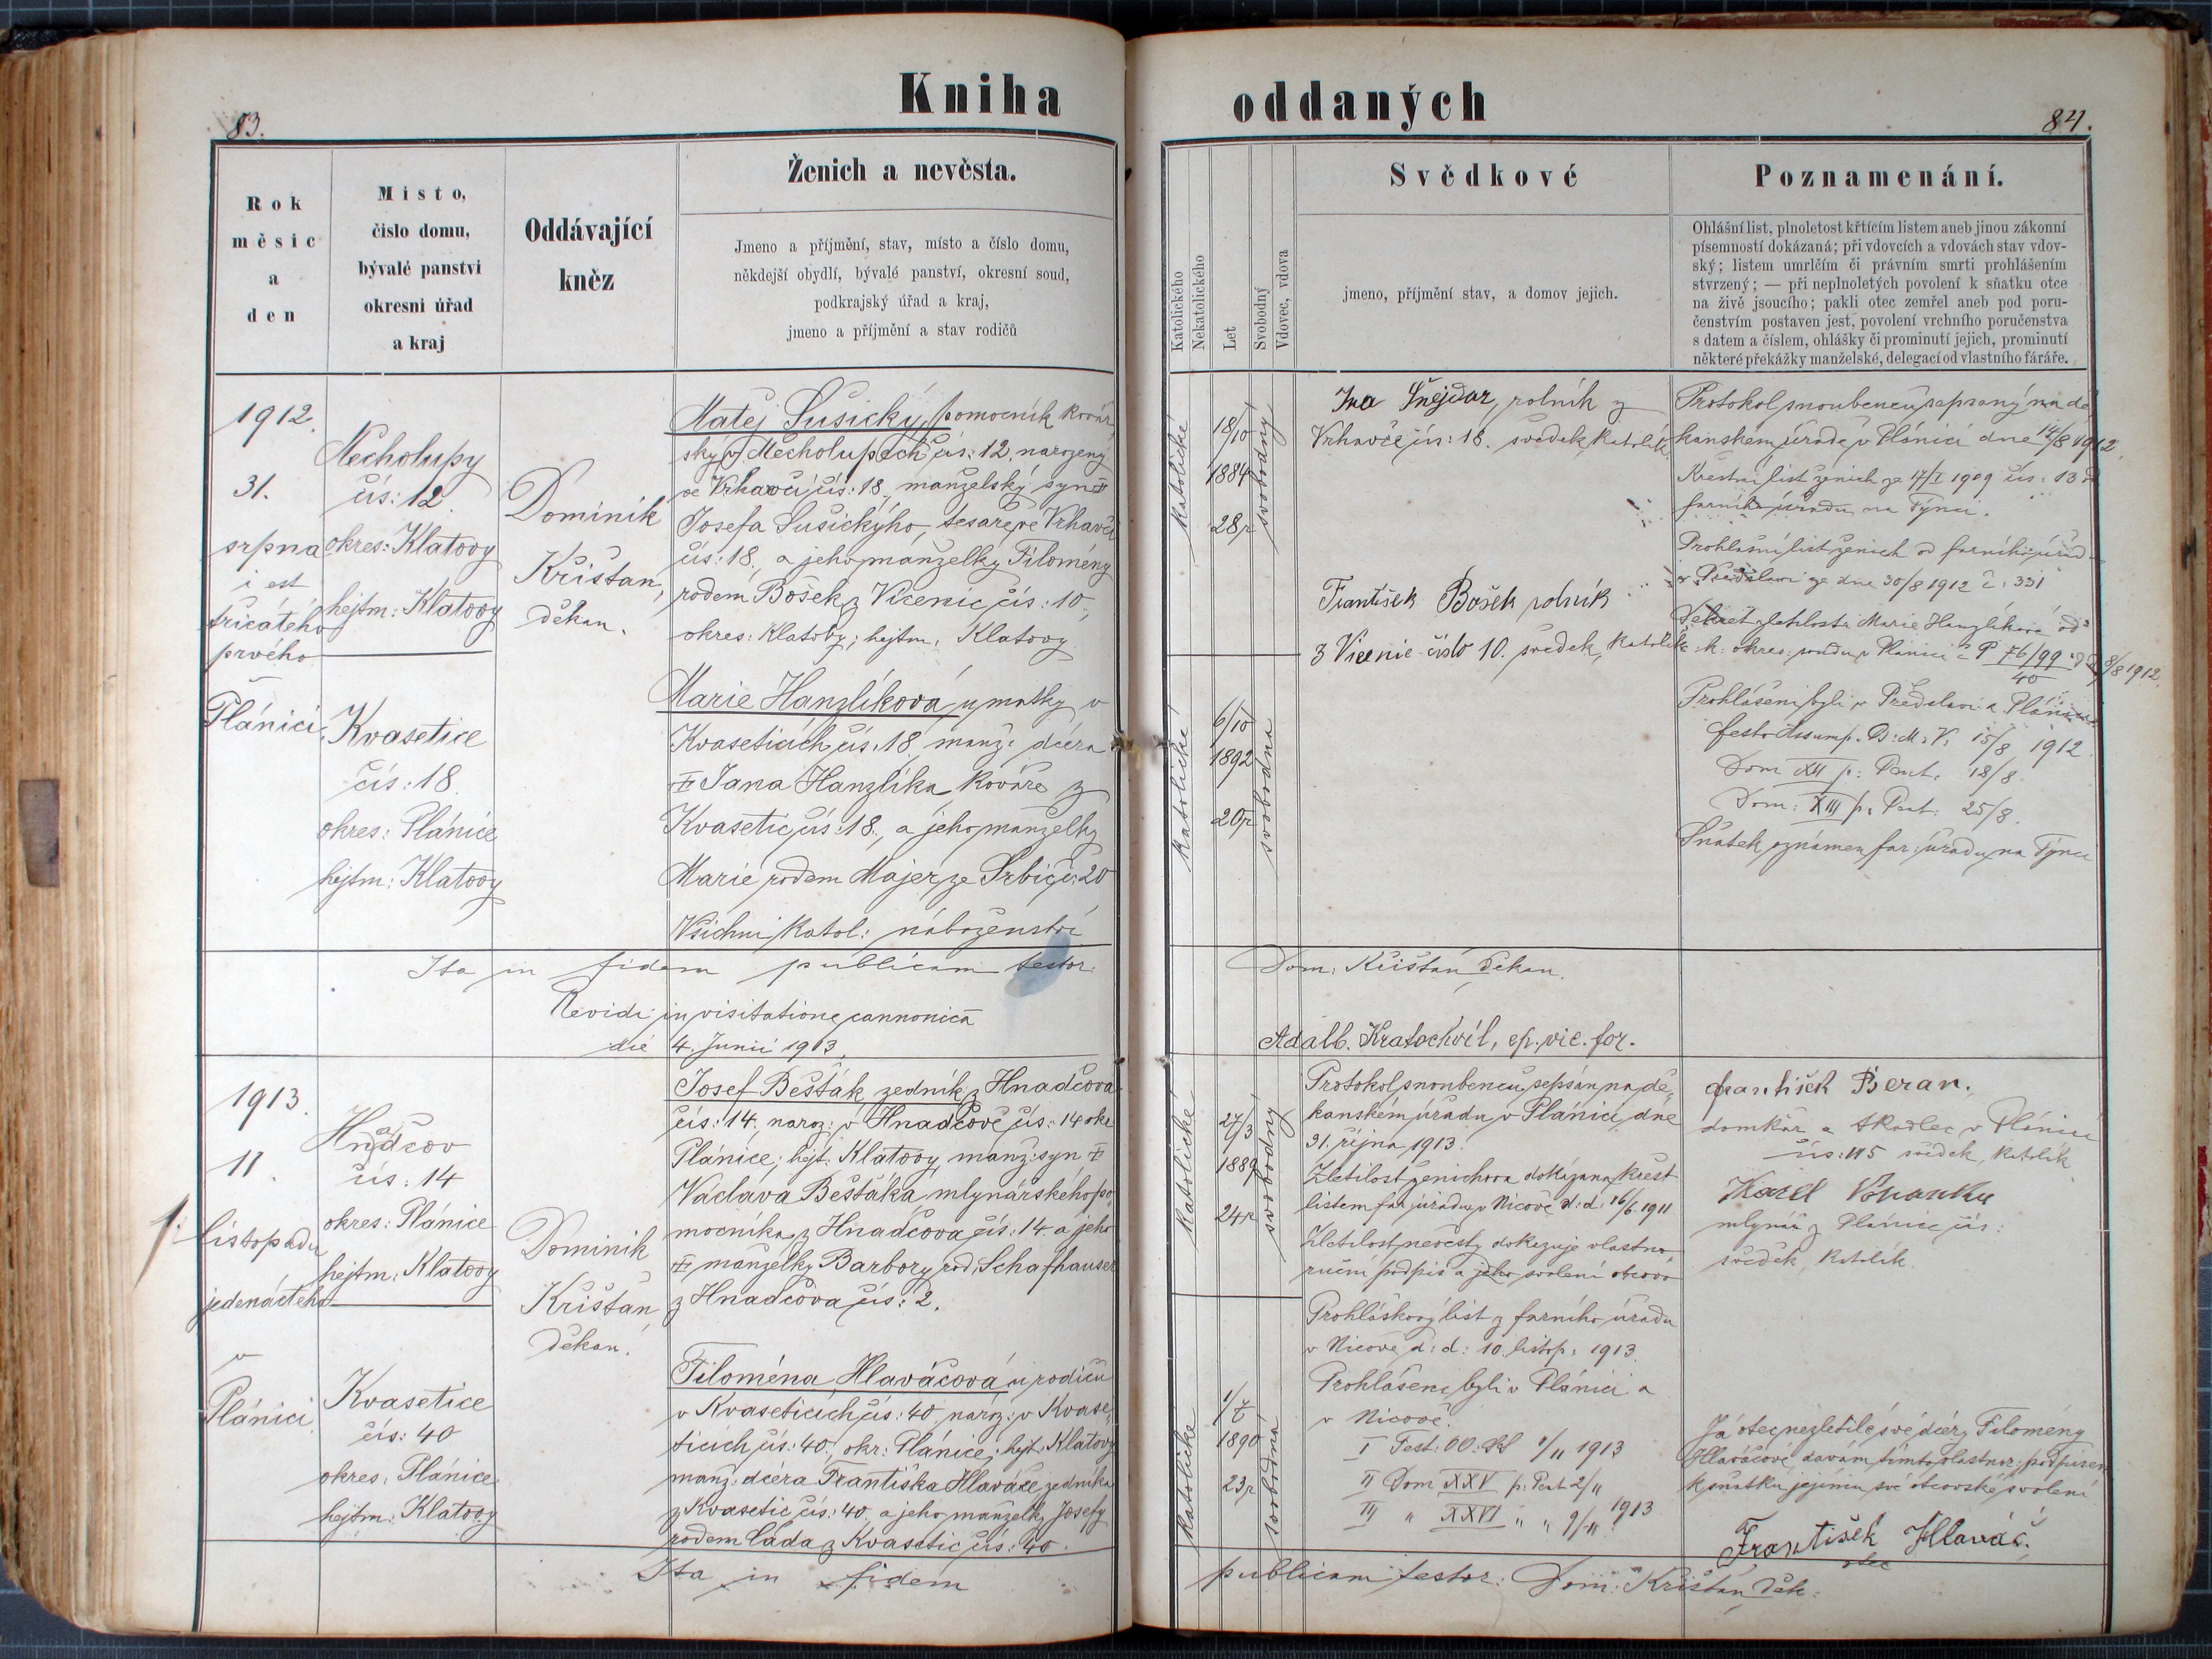 Kniha oddaných
83.
84.
Rok
měsíc
a
den
Místo,
číslo domu,
bývalé panství
okresní úřad
a kraj
Oddávající
kněz
Ženich a nevěsta.
Jmeno a příjmění, stav, místo a číslo domu,
někdejší obydlí, bývalé panství, okresní soud,
podkrajský úřad a kraj,
jmeno a příjmění a stav rodičů
Katolického
Nekatolického
Let
Svobodný
Vdovec, vdova
Svědkové
jmeno, příjmění stav, a domov jejich.
Poznamenání.
Ohlášní list, plnoletost křtícím listem aneb jinou zákonní
písemností dokázaná; při vdovcích a vdovách stav vdov-
ský; listem umrlčím či právním smrti prohlášením
stvrzený; — při neplnoletých povolení k sňatku otce
na živě jsoucího; pakli otec zemřel aneb pod poru-
čenstvím postaven jest, povolení vrchního poručenstva
s datem a číslem, ohlášky či prominutí jejich, prominutí
některé překážky manželské, delegací od vlastního fáráře.
1912.
31.
srpna
i est
třicátého
prvého
v
Plánici
Mecholupy
čís: 12.
okres: Klatovy
hejtm: Klatovy
Kvasetice
čís: 18.
okres: Plánice
hejtm: Klatovy
Dominik
Křišťan,
děkan.
Matěj Sušický, pomocník kovář
ský v Mecholupech čís: 12, narozený
ve Vrhavči čís: 18, manželský syn
Josefa Sušického, tesaře ve Vrhavči
čís: 18., a jeho manželky Filomény
rodem Bošek z Vicenic čís: 10.,
okres: Klatovy; hejtm: Klatovy
Marie Hanzlíková, u matky v
Kvaseticích čís. 18, manž: dcera
Jana Hanzlíka, kováře z
Kvasetic čís: 18., a jeho manželky
Marie rodem Majer ze Srbic č: 20
Všichni katol: náboženství
katolické
18/10
1884
28 r
svobodný
katolické
6/10
1892
20 r
svobodná
Šnejdar, rolník z
Vrhavče čís: 18. svědek, katolík
František Bošek rolník
z Vicenic číslo 10. svědek, katolík
Protokol snoubenců sepsaný na dě
kanském úřadě v Plánici dne 14/8 1912.
Křestní list ženich ze 17/I 1909 čís: 13 od
farního úřadu na Týnci.
Prohlašní list ženich od farního úřad
v Předslavi ze dne 30/8 1912 č: 331
zletilosti Marie Hanzlíkové od
k: okres: soudu v Plánici č P 76/99 d d 8/8 1912.
40
Prohlášeni byli v Předslavi a Plánici
festo Assump. B: M: V: 15/8 1912.
Dom XII p: Pent: 18/8.
Dom: XIII p. Pent: 25/8.
Sňatek oznámen far: úřadu na Týnci
Ita in fidem publicam testor: Dom: Křišťan děkan.
Revidi in visitatione cannonica
die 4. Junii 1913.
Adalb. Kratochvíl, ep. vic. for.
1913.
11.
listopadu
jedenáctého
v
Plánici
Hnačov
čís: 14
okres: Plánice
hejtm: Klatovy
Kvasetice
čís: 40
okres: Plánice
hejtm: Klatovy
Dominik
Křišťan
děkan.
Josef Bešták, zedník z Hnadčova
čís: 14., naroz: v Hnadčově čís: 14 okr
Plánice; hejt: Klatovy, manž: syn
Václava Beštáka, mlynářského po
mocníka z Hnadčova čís: 14. a jeho
manželky Barbory rod. Schafhauser
z Hnadčova čís: 2.
Filoména Hlaváčová, u rodičů
v Kvaseticích čís: 40. naroz: v Kvase
ticích čís: 40., okr: Plánice; hejt: Klatovy
manž: dcera Františka Hlaváče, zedníka
z Kvasetic čís: 40., a jeho manželky Josefy
rodem Cáda z Kvasetic čís: 40.
katolické
27/3
1889
24 r
svobodný
katolické
1/
1890
23 r
svobodná
Protokol snoubenců sepsán na dě
kanském úřadu v Plánici, dne
31. října 1913.
Zletilost ženichova dokázána křest
listem far: úřadu v Nicově d: d: 16/6 1911
Zletilost nevěsty dokazuje vlastno
ruční podpis a jeho svolení otcovo
Prohláškový list z farního úřadu
v Nicově d: d: 10. listop: 1913.
Prohlášeni byli v Plánici a
v Nicově.
I Fest: OO: SS 1/11 1913
II Dom XXV p: Pent 2/11
III " XXVI " " 9/11 1913
František Beran.
domkář a tkadlec v Plánici
čís: 115 svědek, katolík
Karel
mlynář z Plánice čís:
svědek, katolík.
Já otec nezletilé své dcery Filomény
Hlaváčové davám tímto vlastnor: podpisem
k sňatku jejímu své otcovské svolení
František Hlaváč.
otec
Ita in fidem publicam testor: Dom: Křišťan děk: